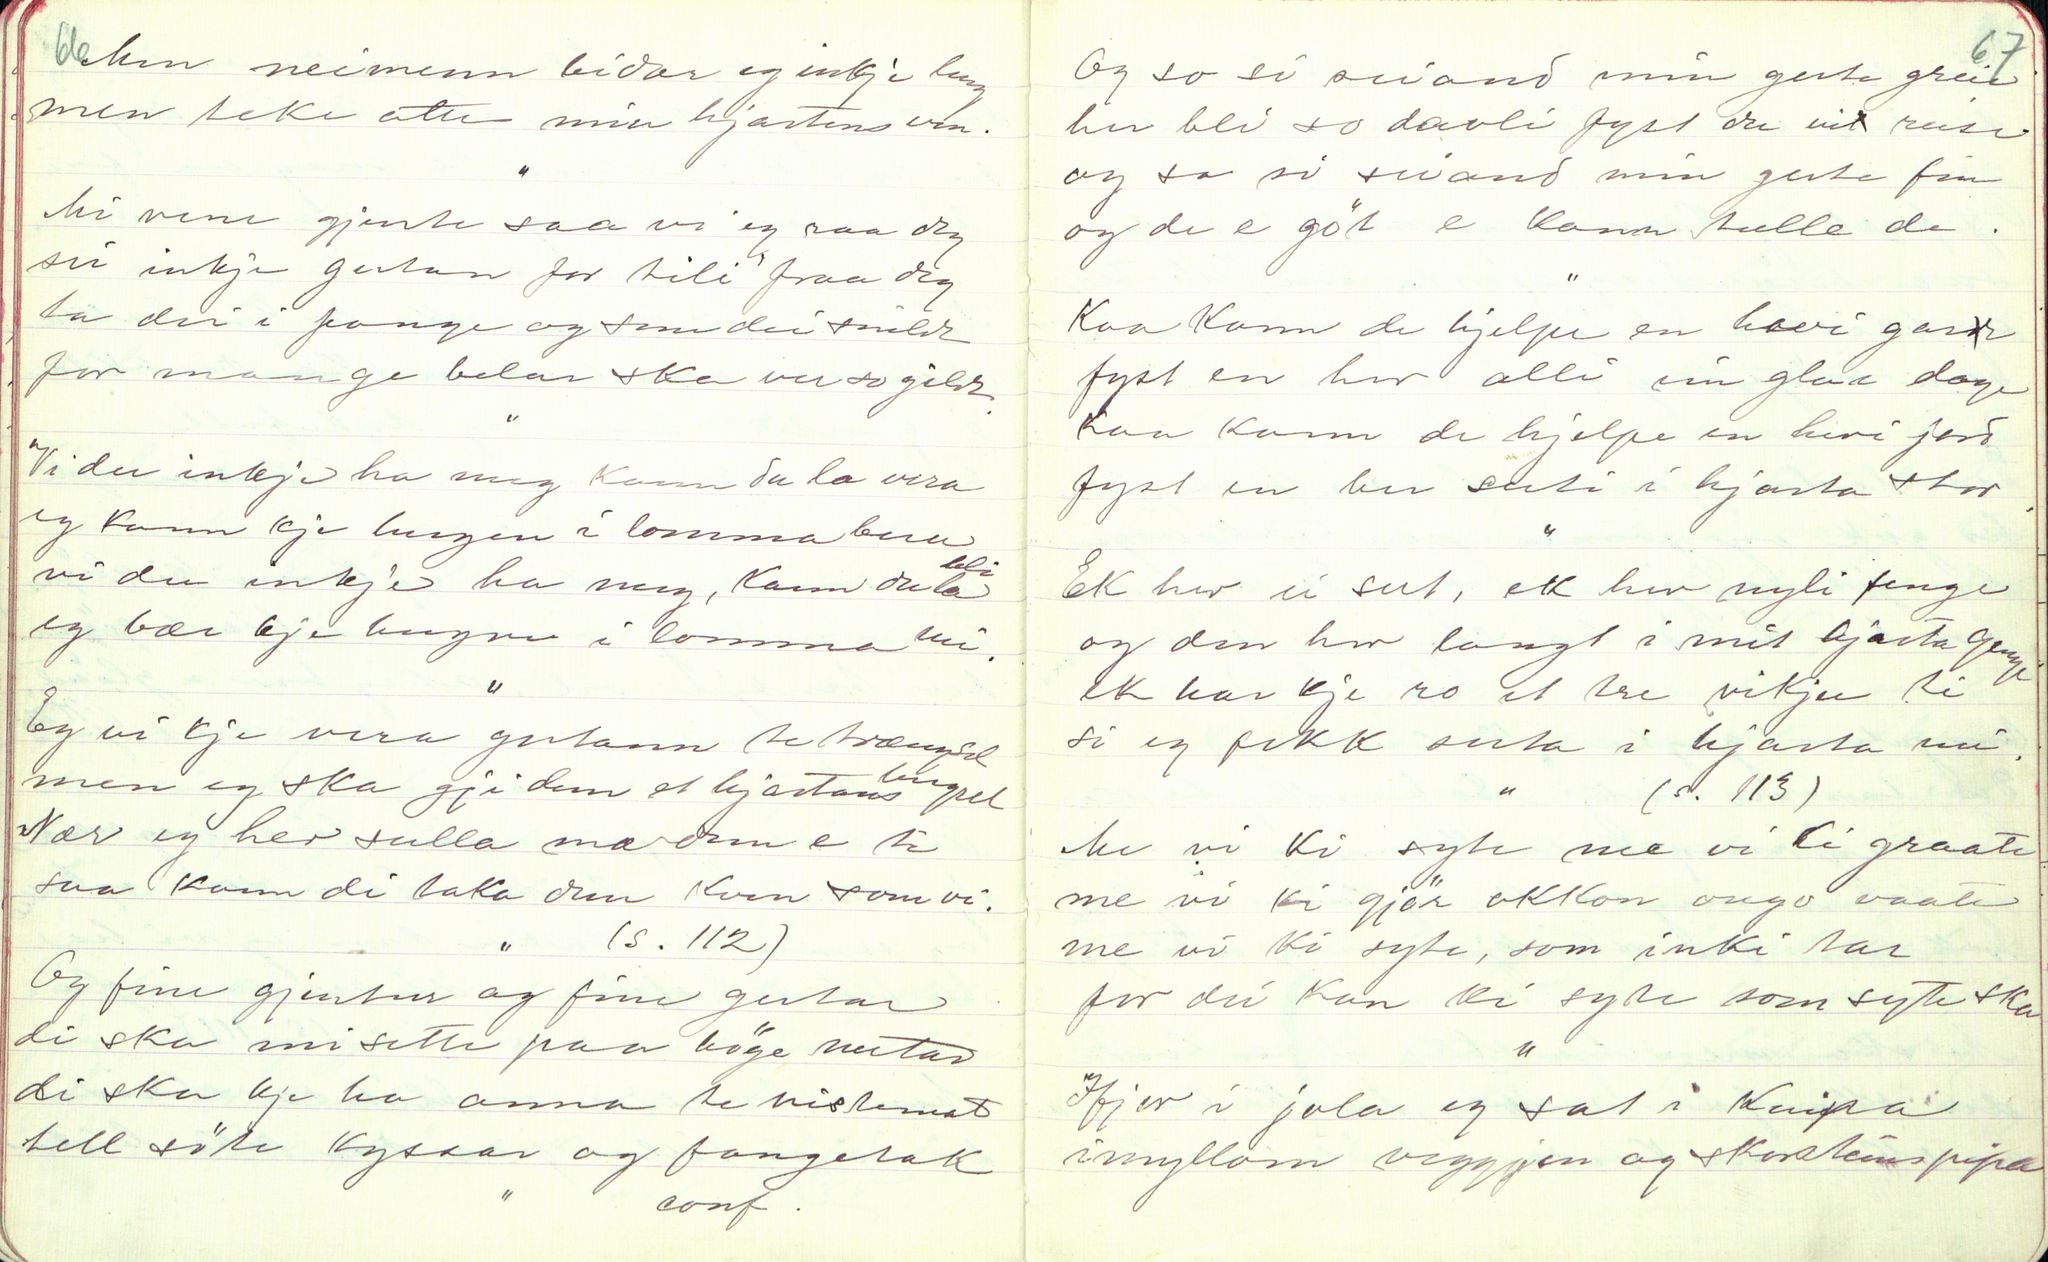 66
Men neimenn bidar eg inkje leng
men teke atte min hjartens ven.
"
Mi vene gjente saa vi eg raa deg
sei inkje gutan for tili' fraa deg
ta dei i fange og som dei snilde
for mange belar ska ver so gilde.
"
Vi du inkje ha meg kann du la vera
eg kann kje hugen i lomma bera
vi du inkje ha meg, kann du la bli
eg bær kje hugen i lomma mi.
"
Eg vi kje vera gutann te trængsel
men eg ska gji dem et hjartans lengsel
Nær eg her sulla mæ dem e ti
saa kann di taka den kven som vi.
" (s. 112)
Og fine gjentur og fine gutar
di ska mi sette paa høge nutar
di ska kje ha anna te vistemat
hell söte kyssar og fangetak
" conf.
67
Og so si eiand min gute greie
her bli so davli fyst du vil reise
og so si eiand min gute fin
og de e göt e kann tulle de.
"
Kaa kann de hjelpe en havi gard
fyst en her alli ein glae dage
kaa kann de hjelpe en hevi jord
fyst en ber suti i hjarta stor.
"
Ek her ei sut, ek her nyli fenge
og den her langt i mit hjarta gjenge
ek har kje ro et tre vikju ti
si eg fekk suta i hjarta mi.
" (s. 113)
Me vi ki syte me vi ki graate
me vi ki gjör okkon augo vaate
me vi ki syte, som inki har
for dei kan ki syte som syte ska
"
Ifjor i jola eg sat i knipa
imyllom veggjen og skorsteins pipa